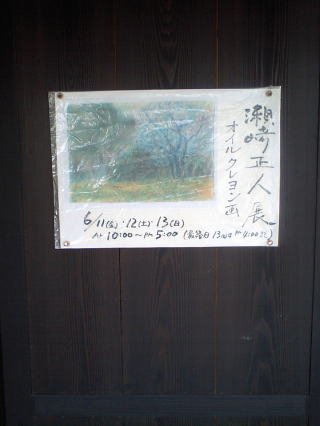 瀬崎正人展
オイルクレヨン画
6/11(金)・12(土)・13(日)
AM 10:00〜PM 5:00 (最終日13日はPM 4:00まで)